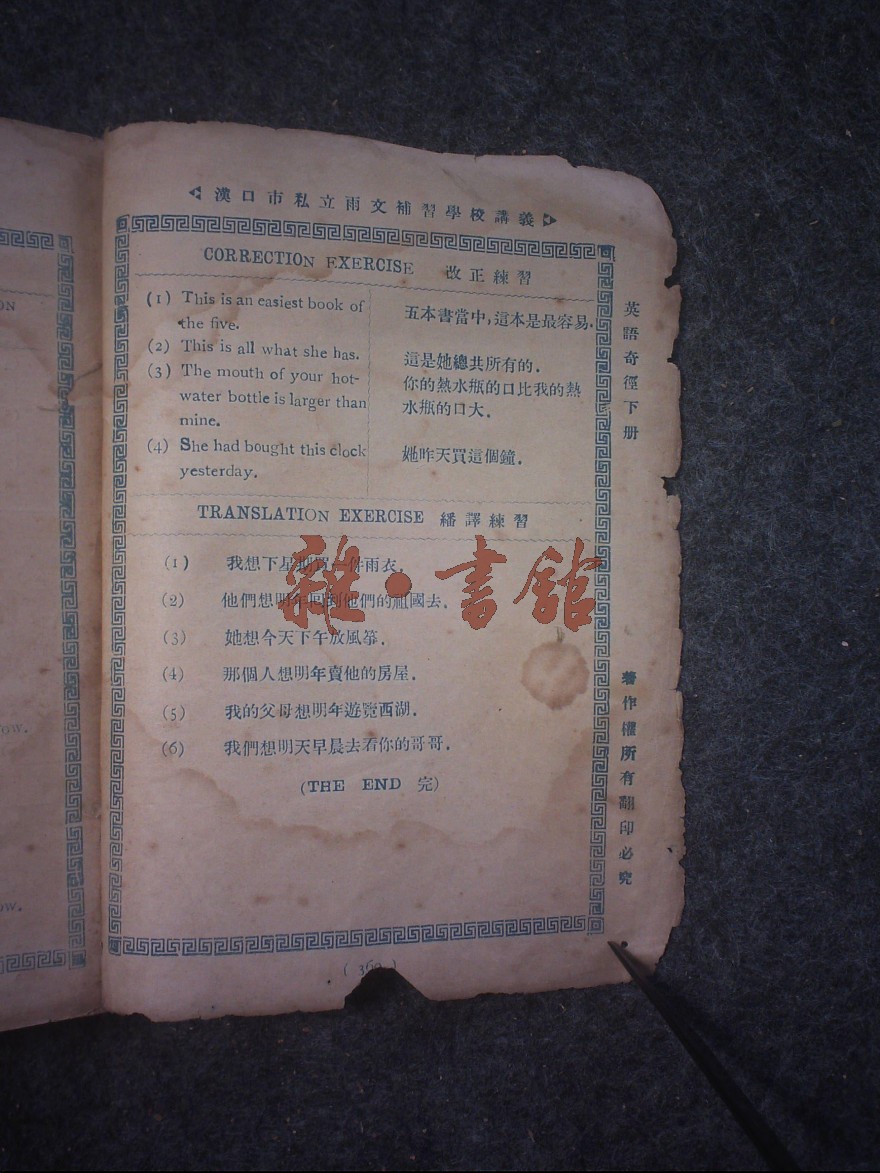 漢口市私立雨文補習學校講義
CORRECTION EXERCISE 改正練習
(1) This is an easiest book of
the five.
五本書當中，這本是最容易.
(2) This is all what she has.
這是她總共所有的.
(3) The mouth of your hot-
water bottle is larger than
mine.
你的熱水瓶的口比我的熱
水瓶的口大.
(4) She had bought this clock
yesterday.
她昨天買這個鐘.
TRANSLATION EXERCISE 繙譯練習
(1) 我想下星期買一件雨衣.
(2) 他們想明年回到他們的祖國去.
(3) 她想今天下午放風箏.
(4) 那個人想明年賣他的房屋.
(5) 我的父母想明年遊覽西湖.
(6) 我們想明天早晨去看你的哥哥.
(THE END 完)
英語奇徑下册
著作權所有翻印必究
雜·書館